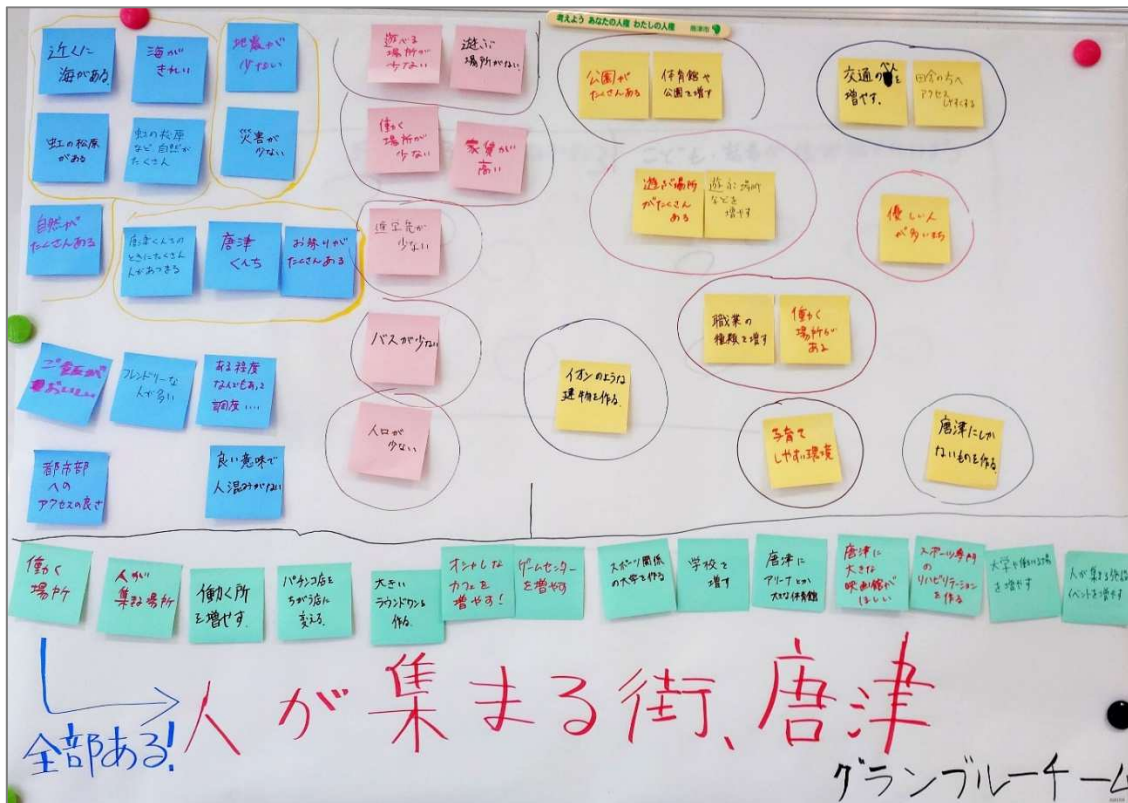 考えよう あなたの人権 わたしの人権 唐津市
近くに
海がある。
海が
きれい
地震が
少ない
虹の松原
がある
虹の松原
など自然が
たくさん
災害が
少ない
自然が
たくさんある
唐津くんちの
ときにたくさん
人があつまる
唐津
くんち
お祭りが
たくさんある
ご飯が
おいしい
フレンドリーな
人が多い
ある程度
なんでもあって
調度....
都市部
への
アクセスの良さ
良い意味で
人混みがない
遊べる
場所が
少ない
遊ぶ
場所がない。
働く
場所が
少ない
家賃が
高い
進学先が
少ない
バスが少ない
人口が
少ない
公園が
たくさんある
体育館や
公園を増す
交通の
増やす。
田舎の方へ
アクセス
しやすくする
遊ぶ場所
がたくさん
ある
遊ぶ場所
などを
増やす
優しい人
が多いまち
職業の
種類を増す
働く
場所が
ある
イオンのような
建物を作る。
子育て
しやすい環境
唐津にしか
ないものを作る。
働く
場所
人が
集まる場所
働く所
を増やす。
パチンコ店を
ちがう店に
変える。
大きい
ラウンドワンを
作る。
オシャレな
カフェを
増やす!
ゲームセンター
を増やす
スポーツ関係
の大学を作る
学校を
増す
唐津に
アリーナとか
大きな体育館
唐津に
大きな
映画館が
ほしい
スポーツ専門
のリハビリテーション
を作る
大学や働ける場
を増やす
人が集まる施設
イベントを増やす
全部ある!
人が集まる街、唐津
グランブルーチーム